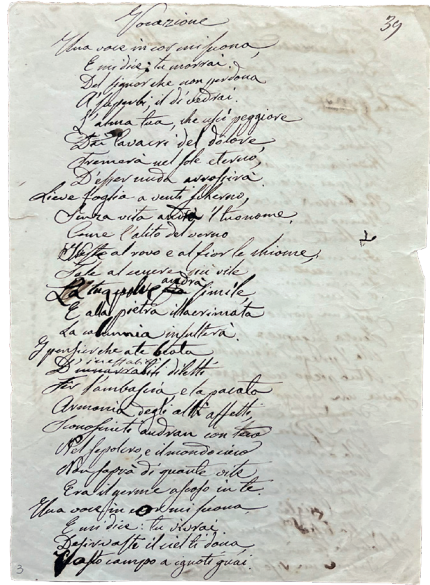 Vocazione
39
Una voce in cor mi suona,
E mi dice: tu morrai.
Del Signor che non perdona
A' superbi, il dì vedrai.
L'alma tua, che uscì peggiore
Dai lavacri del dolore
Tremerà nel sole eterno,
D'esser nuda arrossirà.
Lieve foglia a venti scherno,
Senza vita andrà il tuo nome,
Come l'alito del verno
al rovo e al fior le chiome,
al cenere più vile
La tua polve andrà simile,
E alla pietra illacrimata
La calunnia insulterà.
I pensier che a te beata
D' ineffabili
D'inenarrabili diletti
l'ambascia e la pacata
Armonia degli alti affetti,
Sconosciuti andran con teco
Nel sepolcro e il mondo cieco
Non saprà di quanto vile
Era il germe ascoso in te.
Una voce in cor mi suona
E mi dice: tu vivrai.
il ciel ti dona
Vasto campo a ignoti guai.
3